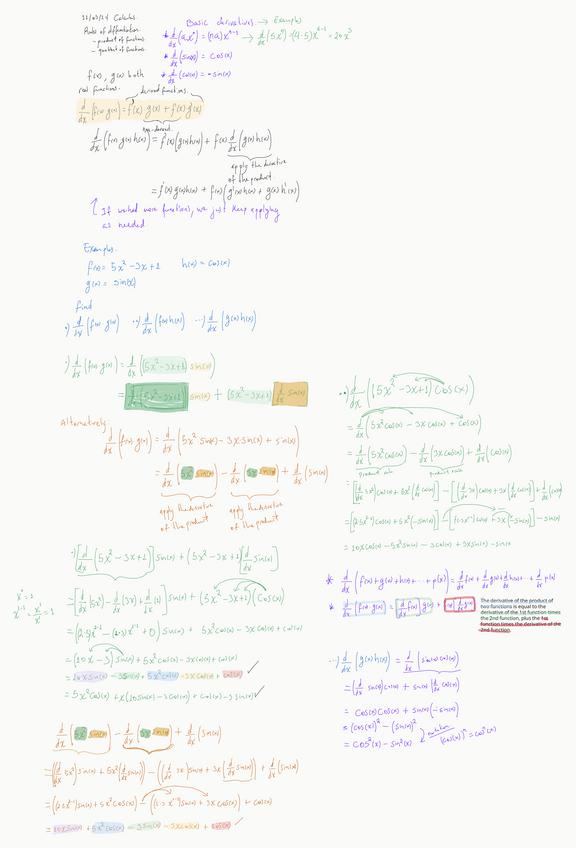 22/03/24 Calculus.
Rules of differentiation:
- product of functions.
- quotient of functions.
Basic derivatives. → Examples
* d/dx (a xⁿ) = (na) xⁿ⁻¹ → d/dx (5x⁴) = (4·5)x⁴⁻¹ = 20x³
* d/dx (sin(x)) = cos(x)
* d/dx (cos(x)) = -sin(x)
f(x), g(x) both
real functions.
derived functions.
d/dx (f(x)·g(x)) = f'(x)·g(x) + f(x)·g'(x)
non-derived.
d/dx (f(x)·g(x)·h(x)) = f'(x)(g(x)·h(x)) + f(x) d/dx (g(x)·h(x))
apply the derivative
of the product
= f'(x)·g(x)·h(x) + f(x)(g'(x)·h(x) + g(x)·h'(x))
If we had more functions, we just keep applying
as needed.
Examples.
f(x) = 5x² - 3x + 1 h(x) = cos(x)
g(x) = sin(x)
find
·) d/dx (f(x)·g(x)) ··) d/dx (f(x)·h(x)) ···) d/dx (g(x)·h(x))
·) d/dx (f(x)·g(x)) = d/dx ((5x² - 3x + 1) sin(x))
= d/dx (5x² - 3x + 1) sin(x) + (5x² - 3x + 1) d/dx sin(x)
Alternatively:
d/dx (f(x)·g(x)) = d/dx (5x² sin(x) - 3x sin(x) + sin(x))
= d/dx (5x² sin(x)) - d/dx (3x sin(x)) + d/dx (sin(x))
apply the derivative apply the derivative
of the product of the product
·) [d/dx (5x² - 3x + 1)] sin(x) + (5x² - 3x + 1)[d/dx sin(x)]
x⁰ = 1
x¹⁻¹ = x¹/x¹ = 1
= [d/dx (5x²) - d/dx (3x) + d/dx (1)] sin(x) + (5x² - 3x + 1)(cos(x))
= (2·5x²⁻¹ - (1·3)x¹⁻¹ + 0) sin(x) + 5x² cos(x) - 3x cos(x) + cos(x)
= (10x - 3) sin(x) + 5x² cos(x) - 3x cos(x) + cos(x)
= 10x sin(x) - 3 sin(x) + 5x² cos(x) - 3x cos(x) + cos(x) ✓
= 5x² cos(x) + x(10 sin(x) - 3 cos(x)) + cos(x) - 3 sin(x) ✓
d/dx (5x² sin(x)) - d/dx (3x sin(x)) + d/dx (sin(x))
= ((d/dx 5x²) sin(x) + 5x² (d/dx sin(x))) - ((d/dx 3x) sin(x) + 3x (d/dx sin(x))) + d/dx (sin(x))
= (2·5x²⁻¹ sin(x) + 5x² cos(x)) - (1·3 x¹⁻¹ sin(x) + 3x cos(x)) + cos(x)
= 10x sin(x) + 5x² cos(x) - 3 sin(x) - 3x cos(x) + cos(x) ✓
··) d/dx ((5x² - 3x + 1) cos(x))
= d/dx (5x² cos(x) - 3x cos(x) + cos(x))
= d/dx (5x² cos(x)) - d/dx (3x cos(x)) + d/dx (cos(x))
product rule product rule
= [(d/dx 5x²) cos(x) + 5x² (d/dx cos(x))] - [(d/dx 3x) cos(x) + 3x (d/dx cos(x))] + d/dx (cos(x))
= [(2·5x²⁻¹) cos(x) + 5x² (-sin(x))] - [(1·3x¹⁻¹) cos(x) + 3x (-sin(x))] - sin(x)
= 10x cos(x) - 5x² sin(x) - 3 cos(x) + 3x sin(x) - sin(x)
* d/dx (f(x) + g(x) + h(x) + ··· + p(x)) = d/dx f(x) + d/dx g(x) + d/dx h(x) + ··· + d/dx p(x)
* d/dx (f(x)·g(x)) = [d/dx f(x)] g(x) + f(x) [d/dx g(x)]
The derivative of the product of
two functions is equal to the
derivative of the 1st function times
the 2nd function, plus the 1st
function times the derivative of the
2nd function.
···) d/dx (g(x)·h(x)) = d/dx (sin(x) cos(x))
= (d/dx sin(x)) cos(x) + sin(x) (d/dx cos(x))
= cos(x) cos(x) + sin(x) (-sin(x))
= (cos(x))² - (sin(x))²
= cos²(x) - sin²(x)
notation
(cos(x))ⁿ = cosⁿ(x)